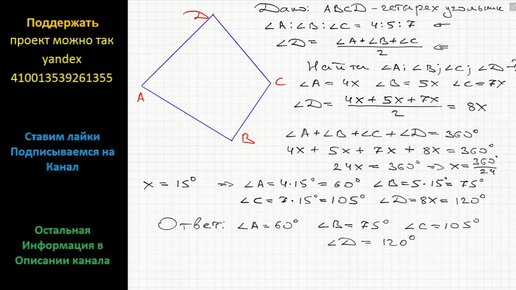 Поддержать
проект можно так
yandex
410013539261355
Ставим лайки
Подписываемся на
Канал
Остальная
Информация в
Описании канала
D
A
C
B
Дано: ABCD - четырех угольник
∠A:∠B:∠C = 4:5:7
∠D = (∠A+∠B+∠C)/2
Найти ∠A; ∠B; ∠C; ∠D - ?
∠A = 4x ∠B = 5x ∠C = 7x
∠D = (4x+5x+7x)/2 = 8x
∠A+∠B+∠C+∠D = 360°
4x + 5x + 7x + 8x = 360°
24x = 360° ⇒ x = 360°/24
x = 15° ⇒ ∠A = 4·15° = 60° ∠B = 5·15° = 75°
∠C = 7·15° = 105° ∠D = 8x = 120°
Ответ: ∠A = 60° ∠B = 75° ∠C = 105°
∠D = 120°